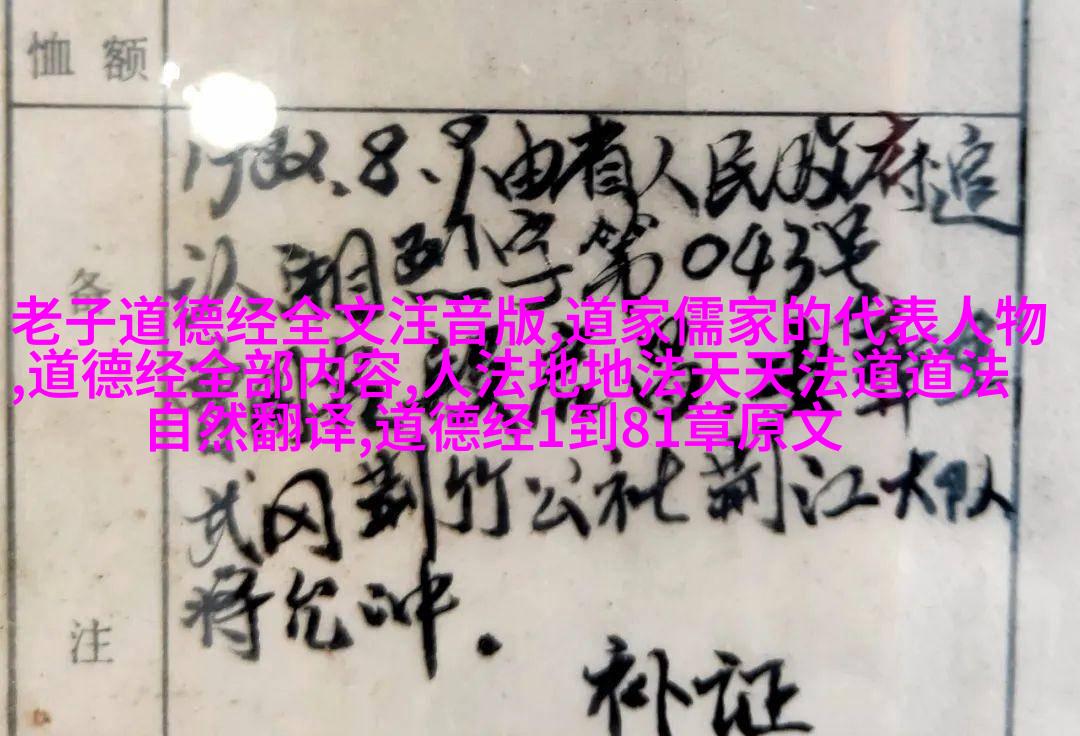 恤额
1982.8.9由省人民政府追
认湘烈字第043号
备
老子道德经全文注音版,道家儒家的代表人物
,道德经全部内容,人法地地法天天法道道法
自然翻译,道德经1到81章原文
武冈荆竹公社荆江大队
蒋允冲.
注
补证